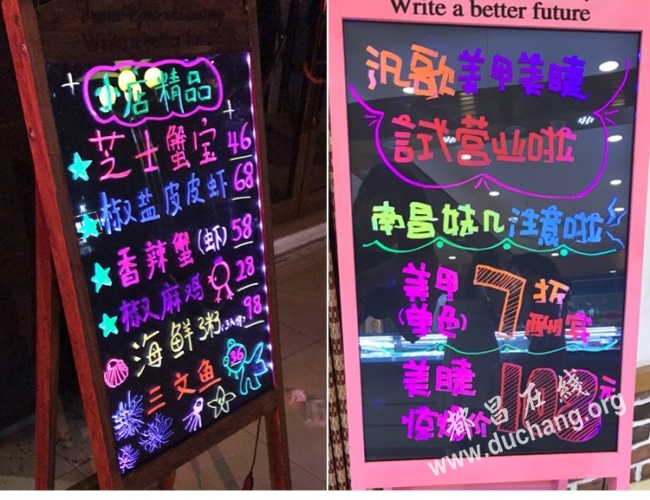 小店精品
芝士蟹宝 46
椒盐皮皮虾 68
香辣蟹(虾) 58
椒麻鸡 28
海鲜粥 98
三文鱼 36
Write a better future
汎歌美甲美睫
試营业啦
南昌妹儿注意啦
美甲 7折
(单色)
美睫
价 100元
都昌在线
www.duchang.org